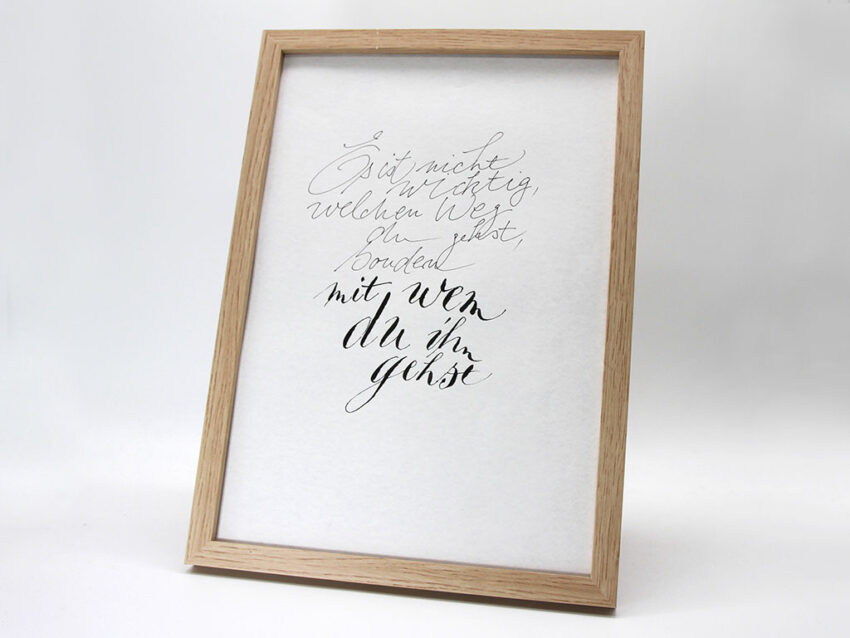 Es ist nicht
wichtig,
welchen Weg
du gehst,
sondern
mit wem
du ihn
gehst